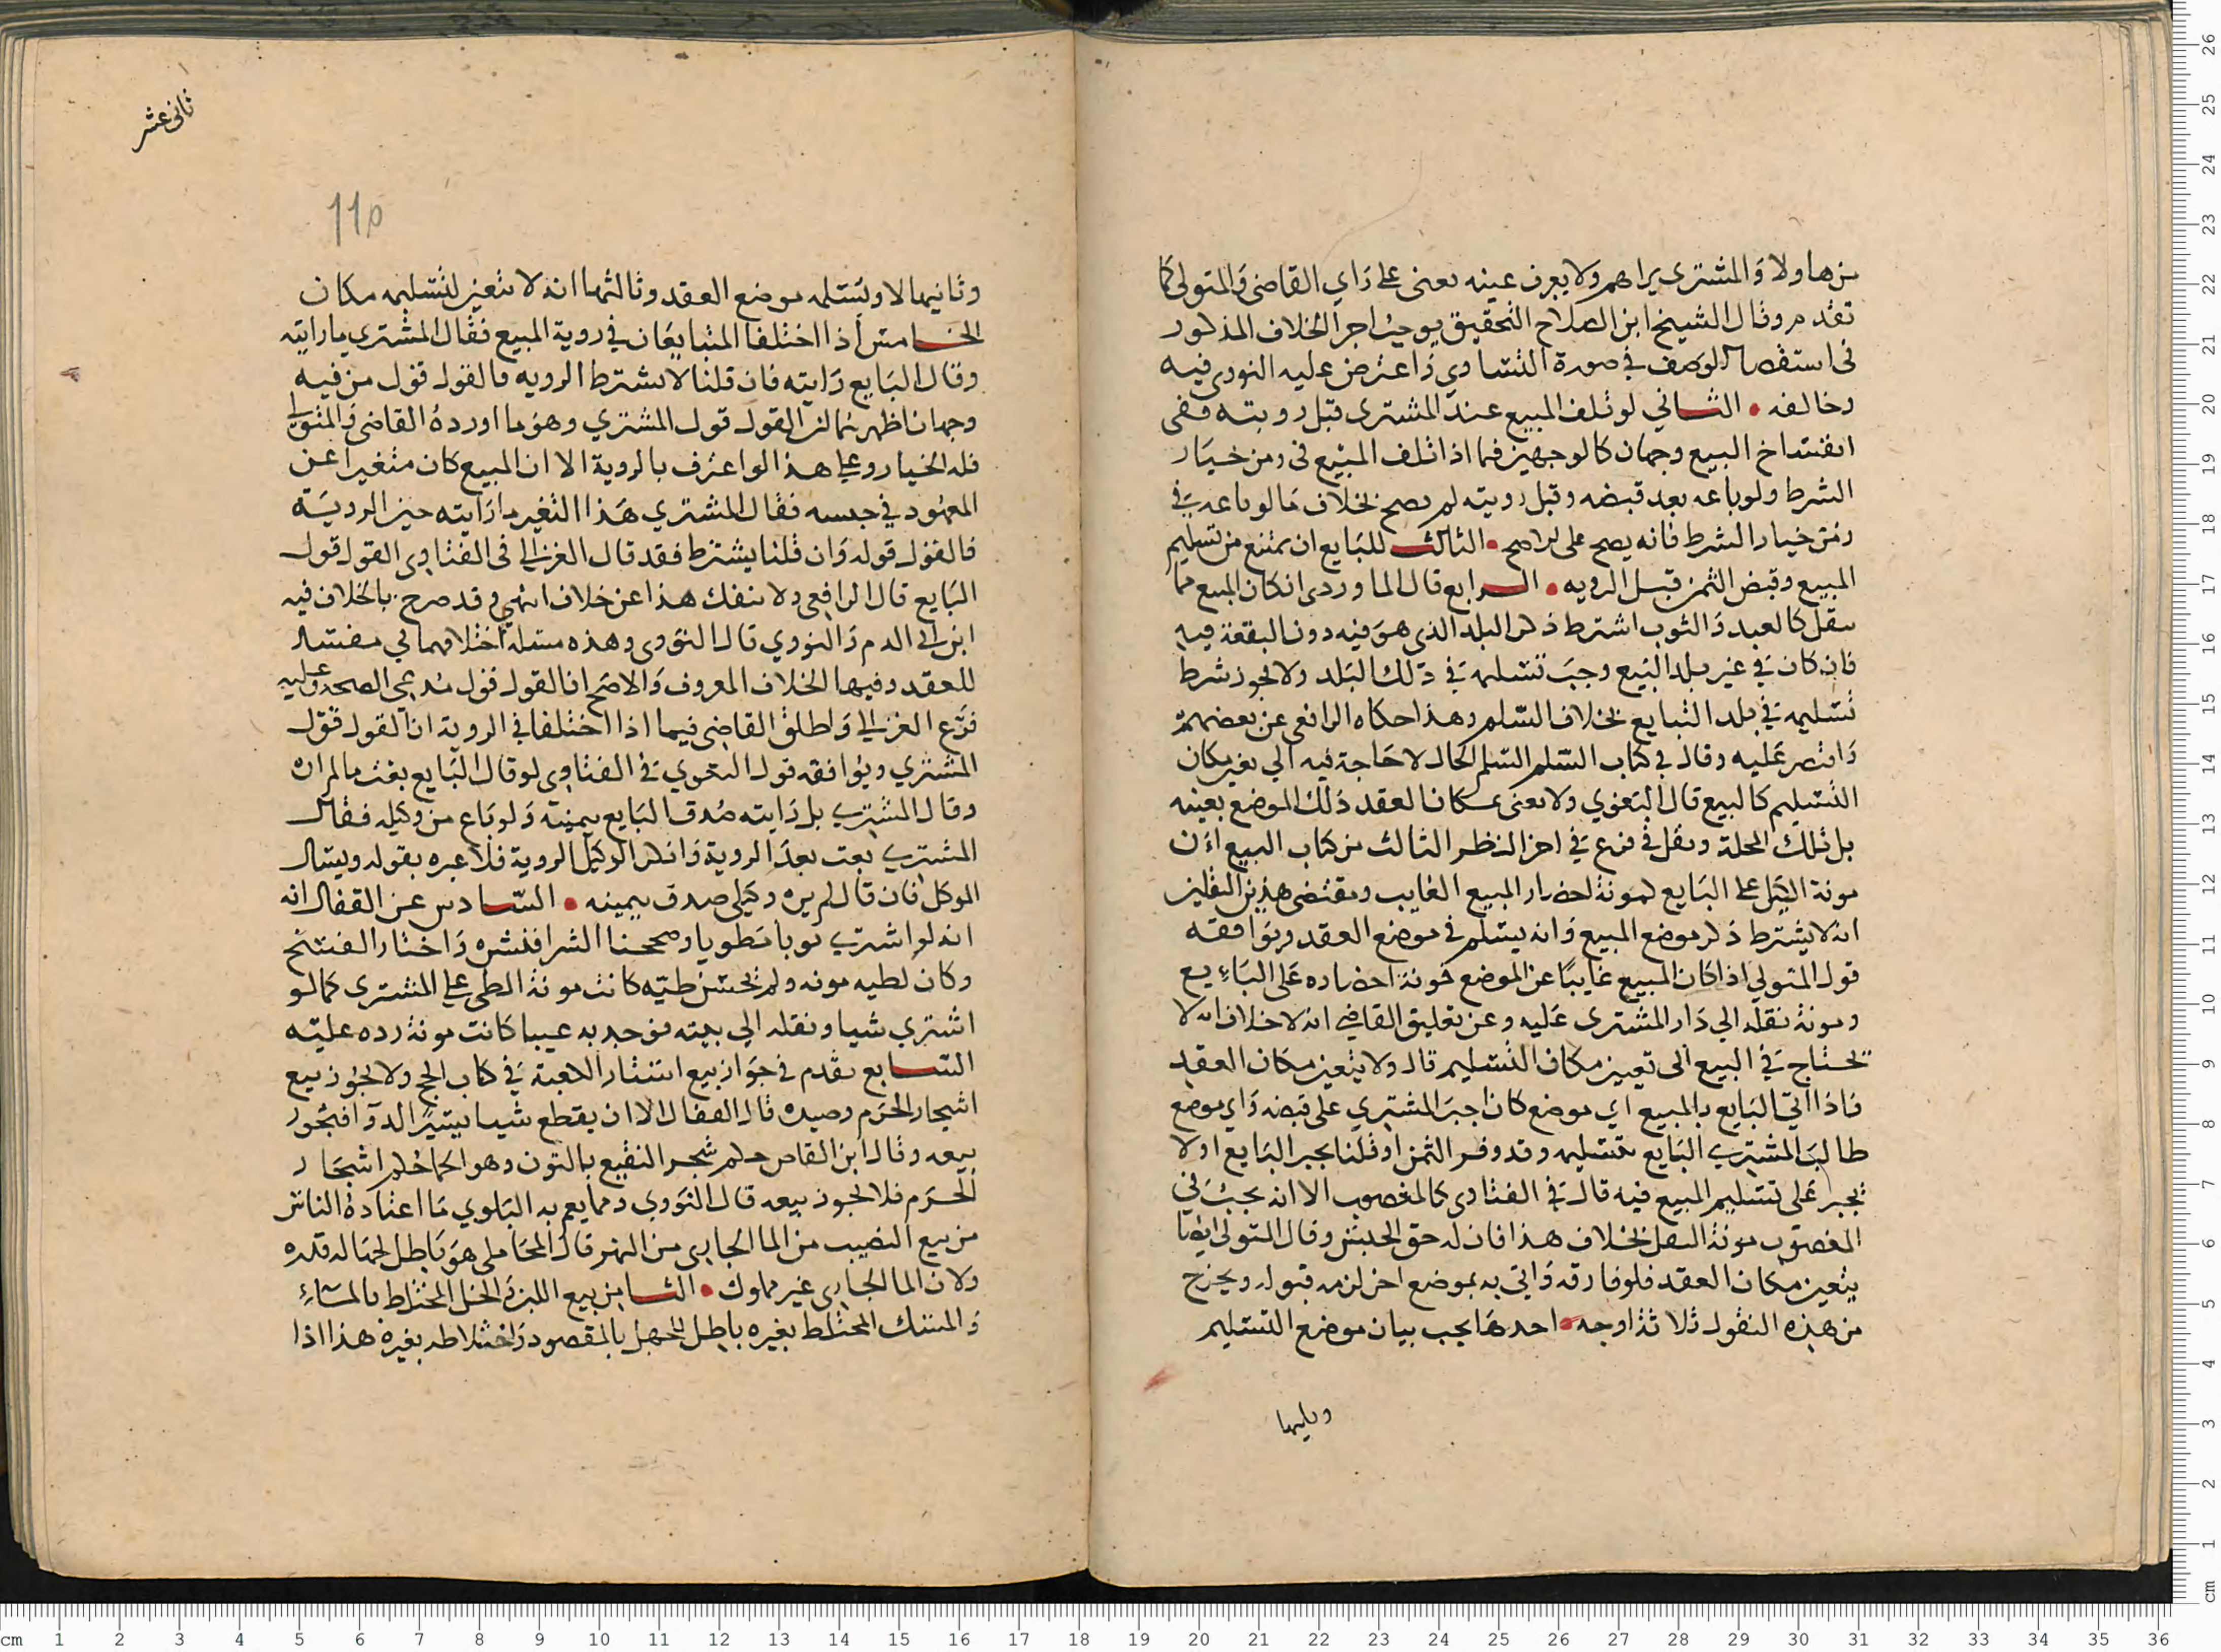 من هاولا والمشتري يراهم ولا يعرف عينه يعني على راي القاضي والمتولي كما
تقدم وقال الشيخ ابن الصلاح التحقيق يوجب اجرا الخلاف المذكور
في استقصا الوصف في صورة التساوي واعترض عليه النووي فيه
وخالفه الثاني لو تلف المبيع عند المشتري قبل رويته ففي
انفساخ البيع وجهان كالوجهين فيما اذا تلف المبيع في زمن خيار
الشرط ولو باعه بعد قبضه وقبل رويته لم يصح بخلاف ما لو باعه في
زمن خيار الشرط فانه يصح على الاصح الثالث للبايع ان يمتنع من تسليم
المبيع وقبض الثمن قبل الرويه الرابع قال الماوردي ان كان المبيع مما
ينقل كالعبد والثوب اشترط ذكر البلد الذي هو فيه دون البقعة فيه
فان كان في غير بلد البيع وجب تسليمه في ذلك البلد ولا يجوز شرط
تسليمه في بلد التبايع بخلاف السلم وهذا حكاه الرافعي عن بعضهم
واقتصر عليه وقال في كتاب السلم السلم الحال لا حاجة فيه الي تعيين مكان
التسليم كالبيع قال البغوي ولا يعني بمكان العقد ذلك الموضع بعينه
بل تلك المحلة ونقل في فرع في اخر النظر الثالث من كتاب البيع ان
مونة الكيل على البايع كمونة احضار المبيع الغايب ومقتضى هذين النقلين
انه لا يشترط ذكر موضع المبيع وانه يسلم في موضع العقد ويوافقه
قول المتولي اذا كان المبيع غايبا عن الموضع فمونة احضاره على البايع
ومونة نقله الي دار المشتري عليه وعن تعليق القاضي انه لا خلاف انه لا
يحتاج في البيع الى تعيين مكان التسليم قال ولا يتعين مكان العقد
فاذا اتي البايع بالمبيع اي موضع كان اجبر المشتري على قبضه واي موضع
طالب المشتري البايع بتسليمه وقد وفر الثمن او قلنا يجبر البايع اولا
يجبر على تسليم المبيع فيه قال في الفتاوى كالمغصوب الا انه يجب في
المغصوب مونة النقل بخلاف هذا فان له حق الحبس وقال المتولي ايضا
يتعين مكان العقد فلو فارقه واتي به بموضع اخر لزمه قبوله ويخرج
من هذه النقول ثلاثة اوجه احدها يجب بيان موضع التسليم
وثانيها
ثاني عشر
110
وثانيها لا ويسلمه موضع العقد وثالثها انه لا يتعين لتسليمه مكان
الخامس اذا اختلفا المتبايعان في روية المبيع فقال المشتري ما رايته
وقال البايع رايته فان قلنا لا يشترط الرويه فالقول قول من فيه
وجهان اظهرهما ان القول قول المشتري وهو ما اورده القاضي والمتولي
فله الخيار وعلى هذا لو اعترف بالروية الا ان المبيع كان متغيرا عن
المعهود في جنسه فقال المشتري هذا التغير ما رايته حين الروية
فالقول قوله وان قلنا يشترط فقد قال الغزالي في الفتاوى القول قول
البايع قال الرافعي ولا ينفك هذا عن خلاف انتهي وقد صرح بالخلاف فيه
ابن ابي الدم والنووي قال النووي وهذه مسلة اختلافهما في مفسد
للعقد وفيها الخلاف المعروف والاصح ان القول قول مدعي الصحه وعليه
فرع الغزالي واطلق القاضي فيما اذا اختلفا في الروية ان القول قول
المشتري ويوافقه قول البغوي في الفتاوى لو قال البايع بعت ما لم اره
وقال المشتري بل رايته صدق البايع بيمينه ولو باع من وكيله فقال
المشتري بعت بعد الروية وانكر الوكيل الروية فلا عبره بقوله ويسال
الموكل فان قال لم يره وكيلي صدق بيمينه السادس عن القفال انه
انه لو اشتري ثوبا مطويا وصححنا الشرا فنشره واختار الفسخ
وكان لطيه مونه ولم يحسن طيه كانت مونة الطي على المشتري كما لو
اشتري شيا ونقله الي بيته فوجد به عيبا كانت مونة رده عليه
السابع تقدم في جواز بيع استار الكعبة في كتاب الحج ولا يجوز بيع
اشجار الحرم وصيده قال القفال الا ان يقطع شيا يسيرا لدوا فيجوز
بيعه وقال ابن القاص حكم شجر النقيع بالنون وهو الحما حكم اشجار
الحرم فلا يجوز بيعه قال النووي ومما يعم به البلوي ما اعتاده الناس
من بيع النصيب من الما الجاري من النهر قال المحاملي هو باطل لجهالة قدره
ولان الما الجاري غير مملوك الثامن بيع اللبن والخل المختلط بالماء
والمسك المختلط بغيره باطل للجهل بالمقصود واختلاطه بغيره هذا اذا